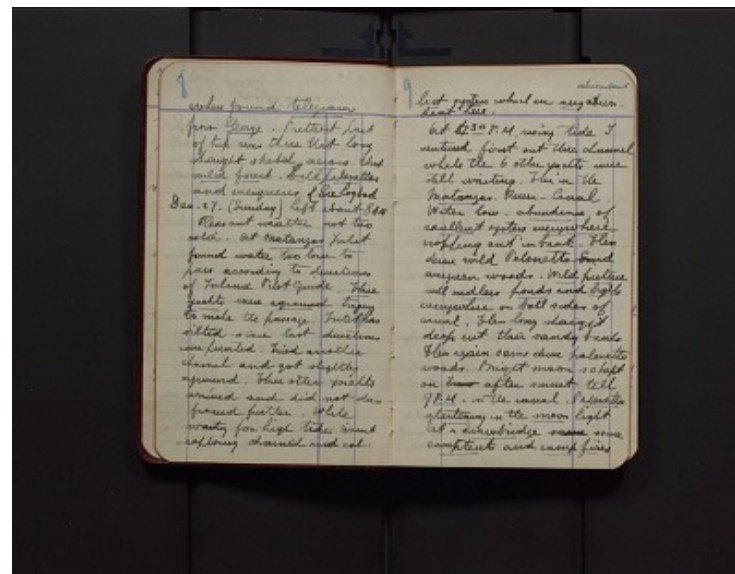 8
when found telegram
from George. Prettiest part
of trip was three that long
straight stretch across that
wild forest. Tall palmettos
and evergreens. of See Logbook
Dec. 27. (Sunday) left about 8 AM
Pleasant weather not too
cold. At Matanzas Inlet
found water too low to
pass according to directions
of Inland Pilot Guide. Three
yachts were aground trying
to make the passage. Inlet has
silted since last directions
were printed. Tried another
channel and got slightly
aground. Three other yachts
arrived and did not dare
proceed further. While
waiting for high tide went
exploring channel and col-
9
lect oysters which are very abun-
dant here.
At 2.30 P.M. rising tide I
ventured first out thru channel
while the 6 other yachts were
still waiting. Then in the
Matanzas River - Canal.
Water low. abundance of
excellent oysters everywhere
cropping out in bank. Then
dense wild Palmetto and
evergreen woods. Wild picture
with endless ponds and lights
everywhere on both sides of
canal. Then long straight
deep cut thru sandy banks
Then again same dense palmetto
woods. Bright moon so kept
on after sunset till
9 P.M. in the canal. Palmettos
glistening in the moon light
At a drawbridge some
camptents and camp fires